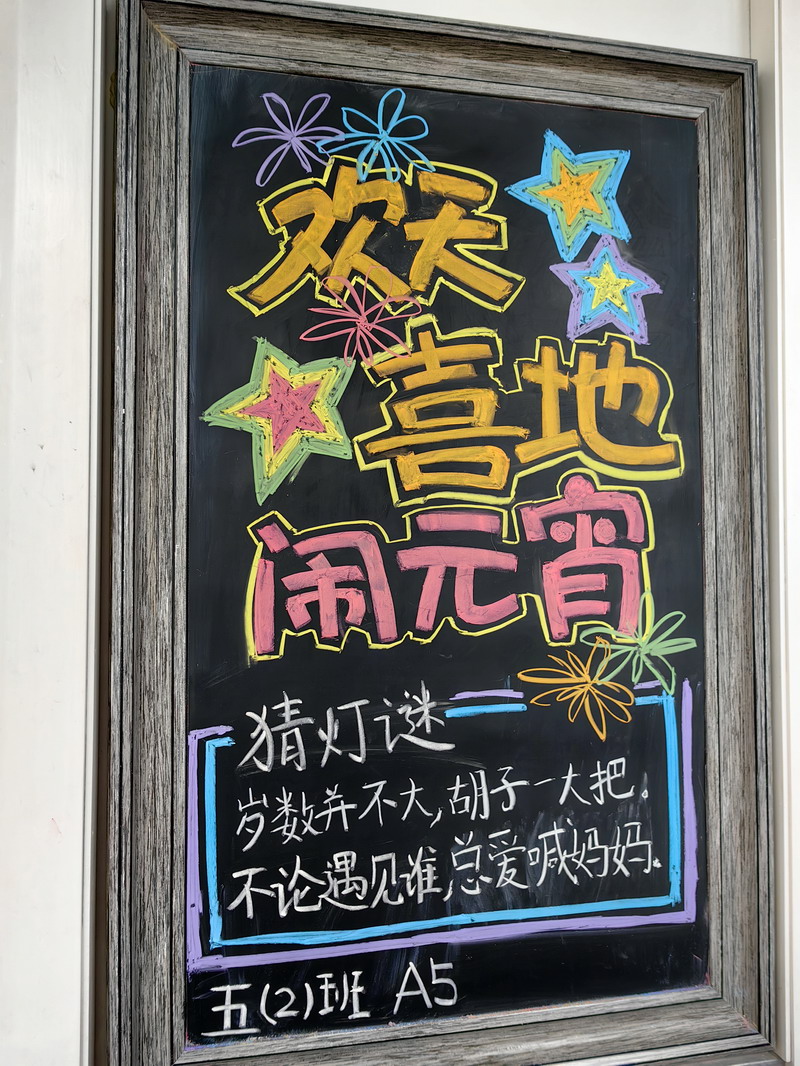 欢天
喜地
闹元宵
猜灯谜
岁数并不大,胡子一大把。
不论遇见谁,总爱喊妈妈.
五(2)班 A5